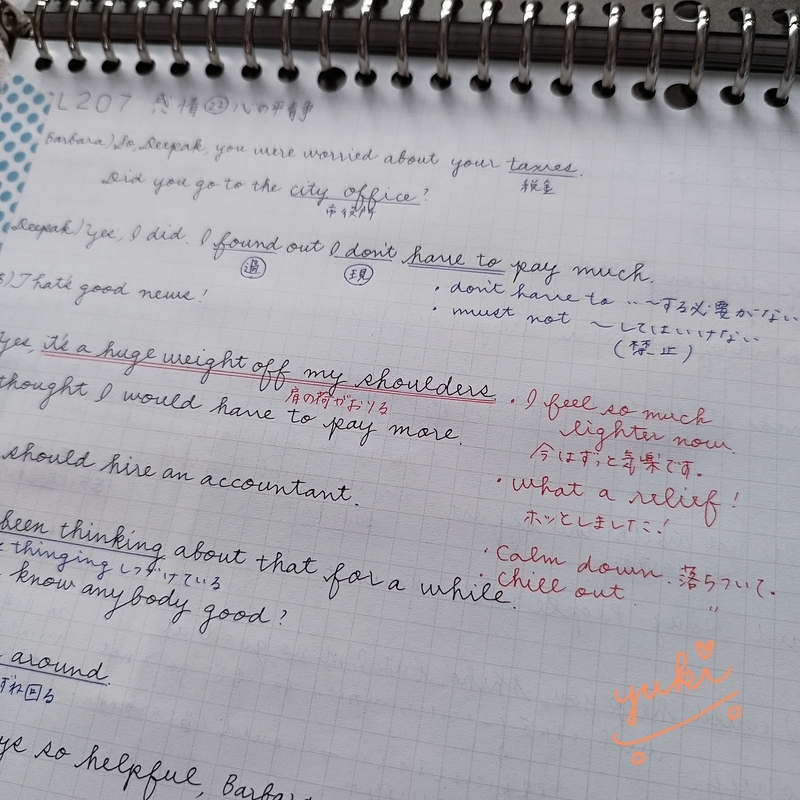 L207 感情㉒心の平静
Barbara) So, Deepak, you were worried about your taxes.
税金
Did you go to the city office?
市役所
Deepak) Yes, I did. I found out I don't have to pay much.
過 現
・don't have to … ~する必要がない
・must not ~してはいけない
(禁止)
) That's good news!
Yes, it's a huge weight off my shoulders
肩の荷がおりる
thought I would have to pay more.
should hire an accountant.
been thinking about that for a while.
thinging しつづけている
know anybody good?
around.
回る
so helpful,
・I feel so much
lighter now.
今はずっと気楽です。
・What a relief!
ホッとしました!
・Calm down. 落ちついて。
・Chill out. 〃
yuki